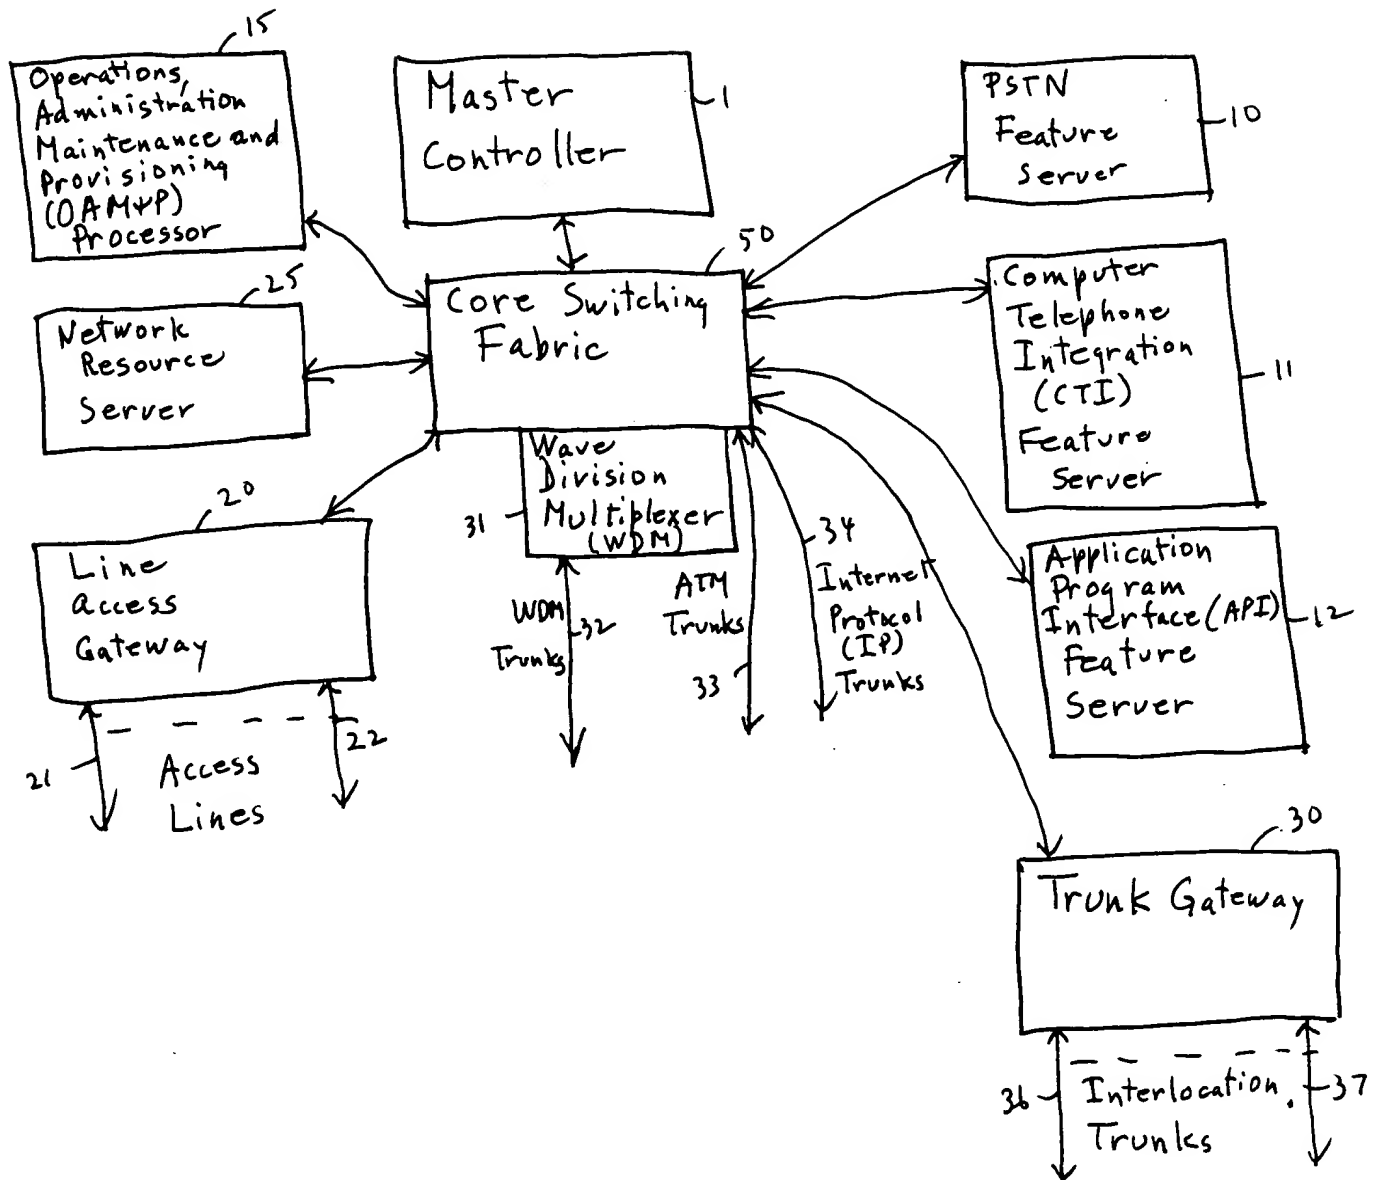 15
Operations,
Administration
Maintenance and
Provisioning
(OAM&P)
Processor
Master
Controller
1
PSTN
Feature
Server
10
50
Core Switching
Fabric
25
Network
Resource
Server
Computer
Telephone
Integration
(CTI)
Feature
Server
11
20
Line
Access
Gateway
21
22
Access
Lines
31
Wave
Division
Multiplexer
(WDM)
WDM
Trunks
32
ATM
Trunks
33
34
Internet
Protocol
(IP)
Trunks
Application
Program
Interface (API)
Feature
Server
12
30
Trunk Gateway
36
Interlocation
Trunks
37